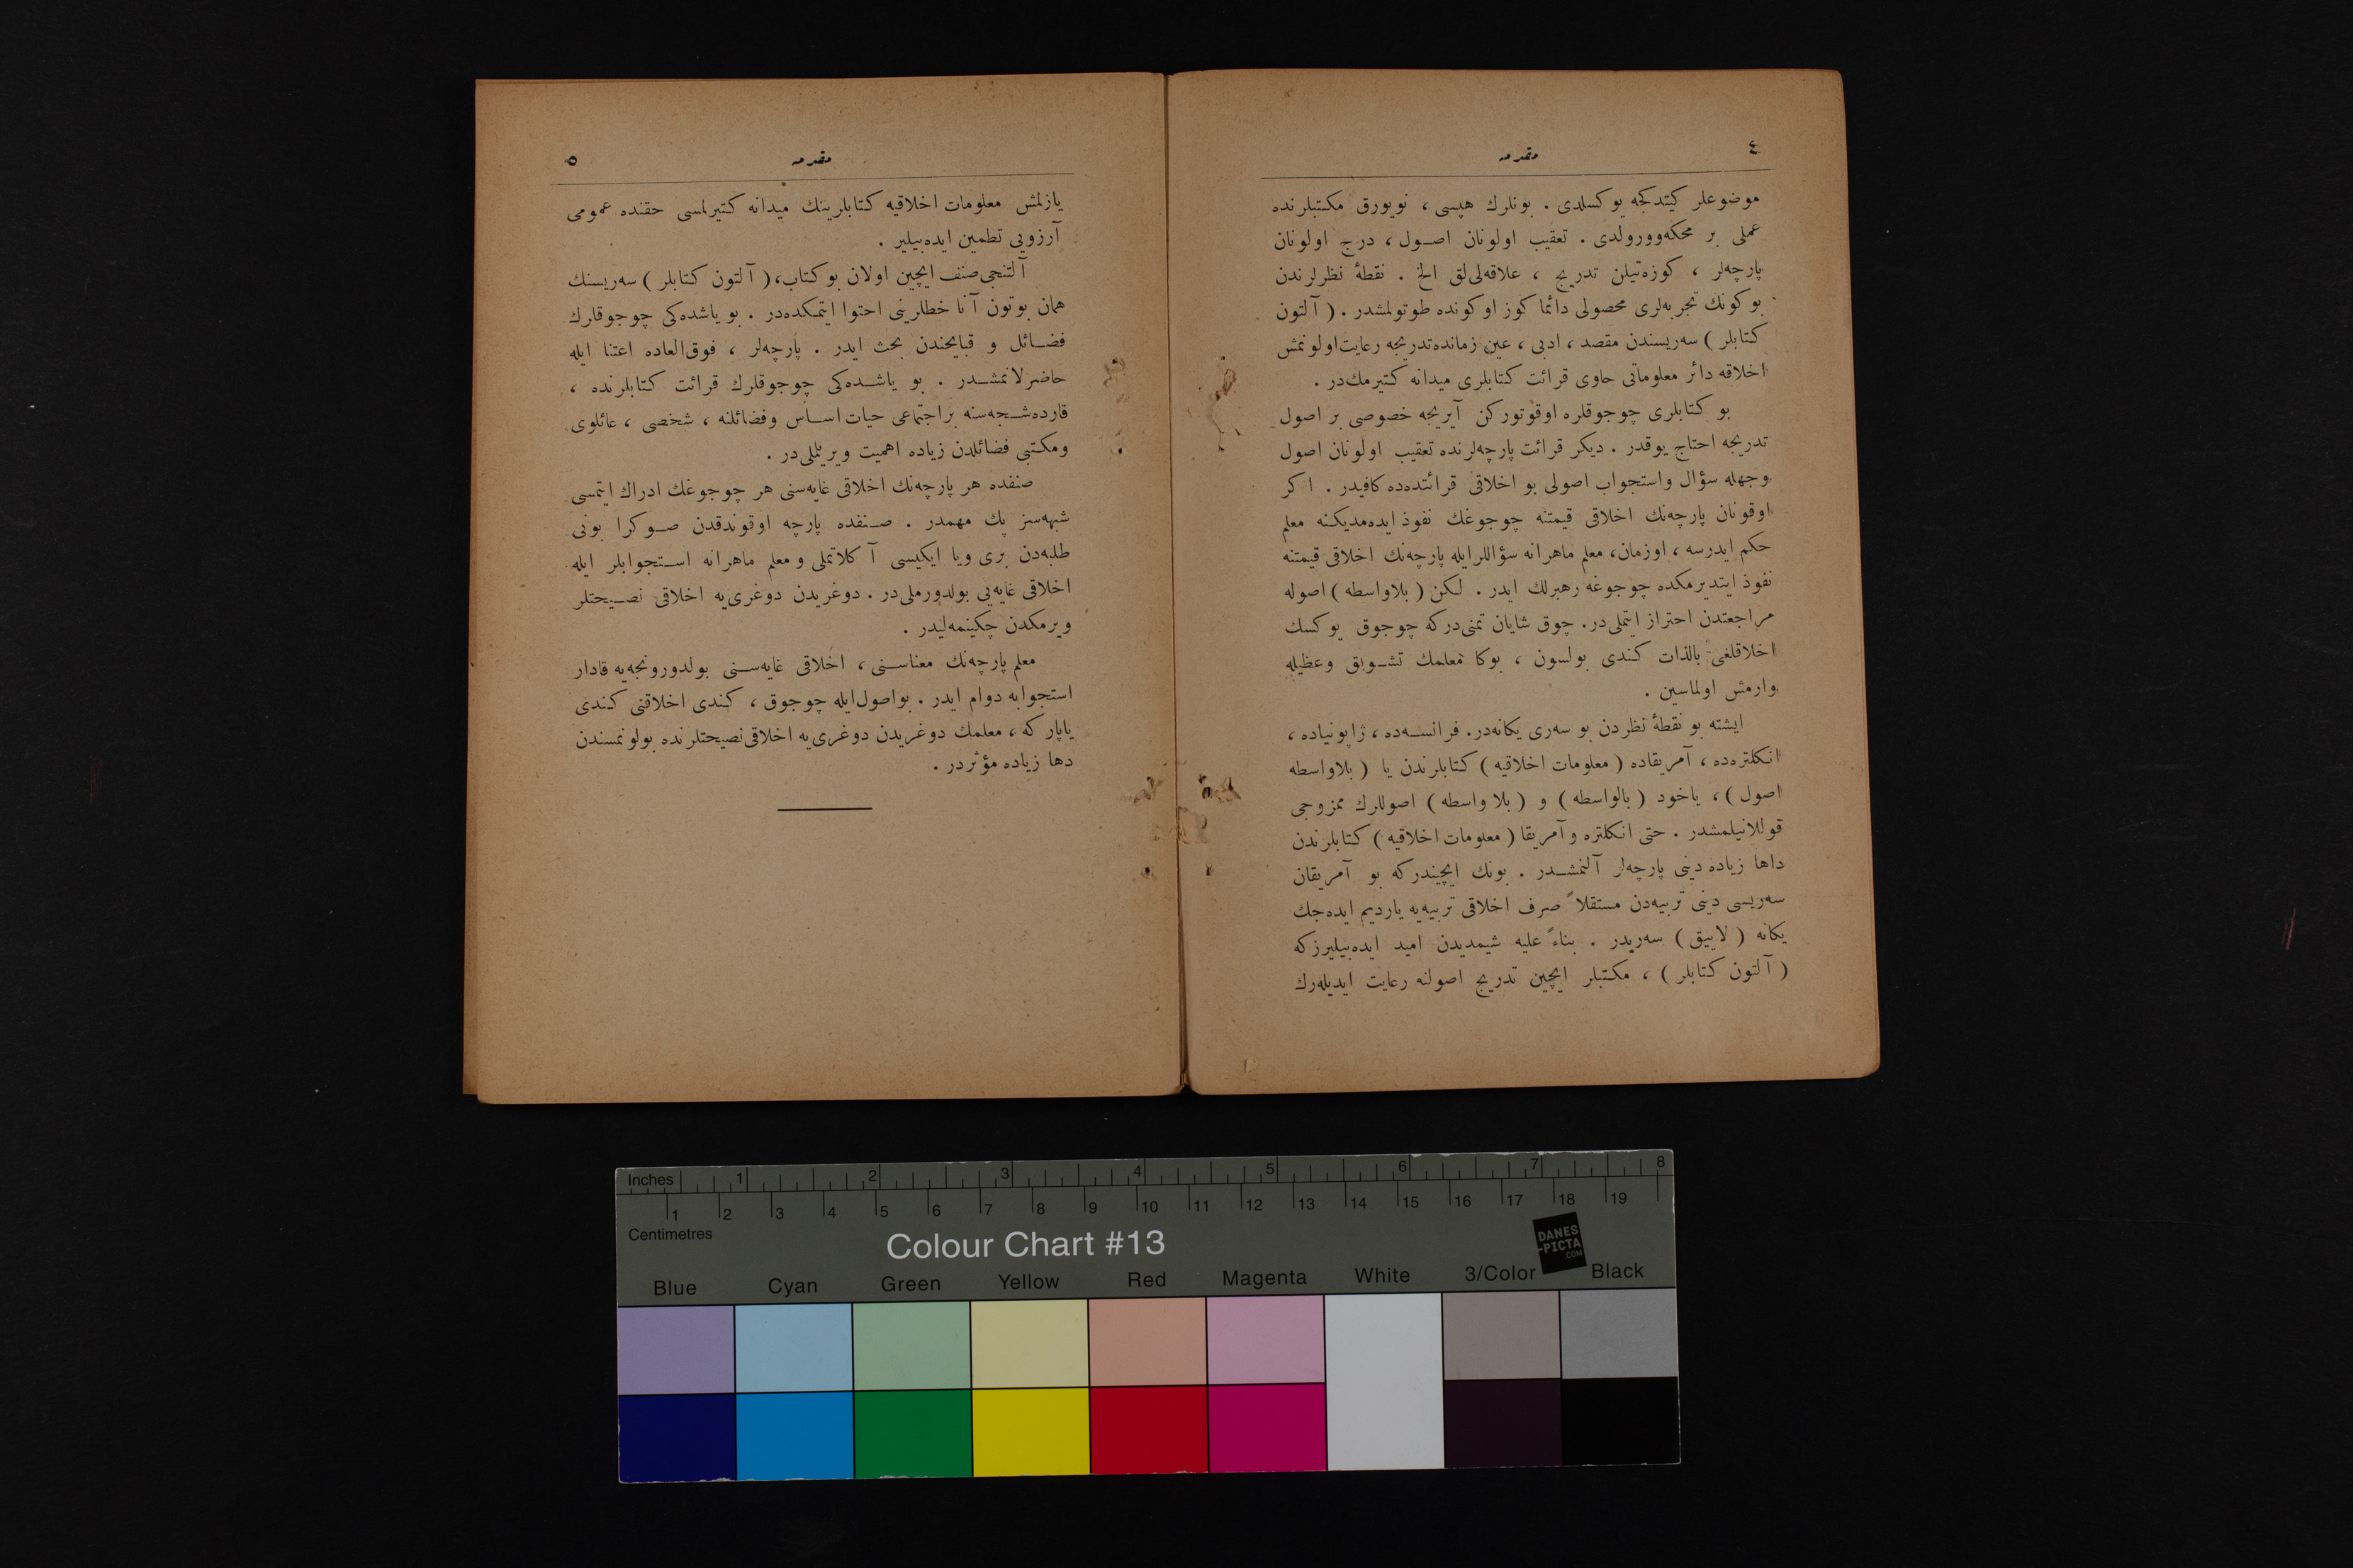 ٤
مقدمه
موضوعلر كيتدكجه يوكسلدى . بونلرك هپسى ، نويورق مكتبلرنده
عملى بر محكه وورولدى . تعقيب اولونان اصول ، درج اولونان
پارچه‌لر ، كوزه‌تيلن تدريج ، علاقه‌لى‌لق الخ . نقطۀ نظرلرندن
بوكونك تجربه‌لرى محصولى دائما كوز اوكونده طوتولمشدر . ( آلتون
كتابلر ) سه‌ريسندن مقصد ، ادبى ، عين زمانده تدريجه رعايت اولونمش
اخلاقه دائر معلوماتى حاوى قرائت كتابلرى ميدانه كتيرمك‌در .
بو كتابلرى چوجوقلره اوقوتوركن آيريجه خصوصى بر اصول
تدريجه احتاج يوقدر . ديكر قرائت پارچه‌لرنده تعقيب اولونان اصول
وجهله سؤال واستجواب اصولى بو اخلاقى قرائتده‌ده كافيدر . اكر
اوقونان پارچه‌نك اخلاقى قيمتنه چوجوغك نفوذ ايده‌مديكنه معلم
حكم ايدرسه ، اوزمان، معلم ماهرانه سؤاللر ايله پارچه‌نك اخلاقى قيمتنه
نفوذ ايتديرمكده چوجوغه رهبرلك ايدر . لكن ( بلاواسطه ) اصوله
مراجعتدن احتراز ايتملى‌در . چوق شايان تمنى‌دركه چوجوق يوكسك
اخلاقلغى بالذات كندى بولسون ، بوكا معلمك تشويق وعظيله
وارمش اولماسين .
ايشته بو نقطۀ نظردن بو سه‌رى يكانه‌در. فرانسه‌ده ، ژاپونياده ،
انكلتره‌ده ، آمريقاده ( معلومات اخلاقيه ) كتابلرندن يا ( بلاواسطه
اصول ) ، ياخود ( بالواسطه ) و ( بلا واسطه ) اصوللرك ممزوجى
قوللانيلمشدر . حتى انكلتره و آمريقا ( معلومات اخلاقيه ) كتابلرندن
داها زياده دينى پارچه‌لر آلنمشدر . بونك ايچيندركه بو آمريقان
سه‌ريسى دينى تربيه‌دن مستقلاً صرف اخلاقى تربيه‌يه يارديم ايده‌جك
يكانه ( لاييق ) سه‌ريدر . بناءً عليه شيمديدن اميد ايده‌بيليرزكه
( آلتون كتابلر ) ، مكتبلر ايچين تدريج اصولنه رعايت ايديله‌رك
٥
مقدمه
يازلمش معلومات اخلاقيه كتابلرينك ميدانه كتيرلمسى حقنده عمومى
آرزويى تطمين ايده‌بيلير .
آلتنجى صنف ايچين اولان بو كتاب، ( آلتون كتابلر ) سه‌ريسنك
همان بوتون آنا خطلرينى احتوا ايتمكده‌در . بو ياشده‌كى چوجوقلرك
فضائل و قبايحندن بحث ايدر . پارچه‌لر ، فوق‌العاده اعتنا ايله
حاضرلانمشدر . بو ياشده‌كى چوجوقلرك قرائت كتابلرنده ،
قارده‌شجه‌سنه بر اجتماعى حيات اساس وفضائلنه ، شخصى ، عائلوى
ومكتبى فضائلدن زياده اهميت ويريلملى‌در .
صنفده هر پارچه‌نك اخلاقى غايه‌سنى هر چوجوغك ادراك ايتمسى
شبهه‌سز پك مهمدر . صنفده پارچه اوقوندقدن صوكرا بونى
طلبه‌دن برى ويا ايكيسى آكلاتملى و معلم ماهرانه استجوابلر ايله
اخلاقى غايه‌يى بولدورملى‌در . دوغريدن دوغرى‌يه اخلاقى نصيحتلر
ويرمكدن چكينمه‌ليدر .
معلم پارچه‌نك معناسنى ، اخلاقى غايه‌سنى بولدورونجه‌يه قادار
استجوابه دوام ايدر . بواصول ايله چوجوق ، كندى اخلاقنى كندى
ياپاركه ، معلمك دوغريدن دوغرى‌يه اخلاقى نصيحتلرنده بولونمسندن
دها زياده مؤثردر .
Inches 1 2 3 4 5 6 7 8
1 2 3 4 5 6 7 8 9 10 11 12 13 14 15 16 17 18 19
Centimetres
Colour Chart #13
DANES
-PICTA
.COM
Blue Cyan Green Yellow Red Magenta White 3/Color Black